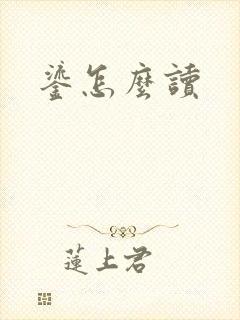 鎏怎麼讀
蓮上君